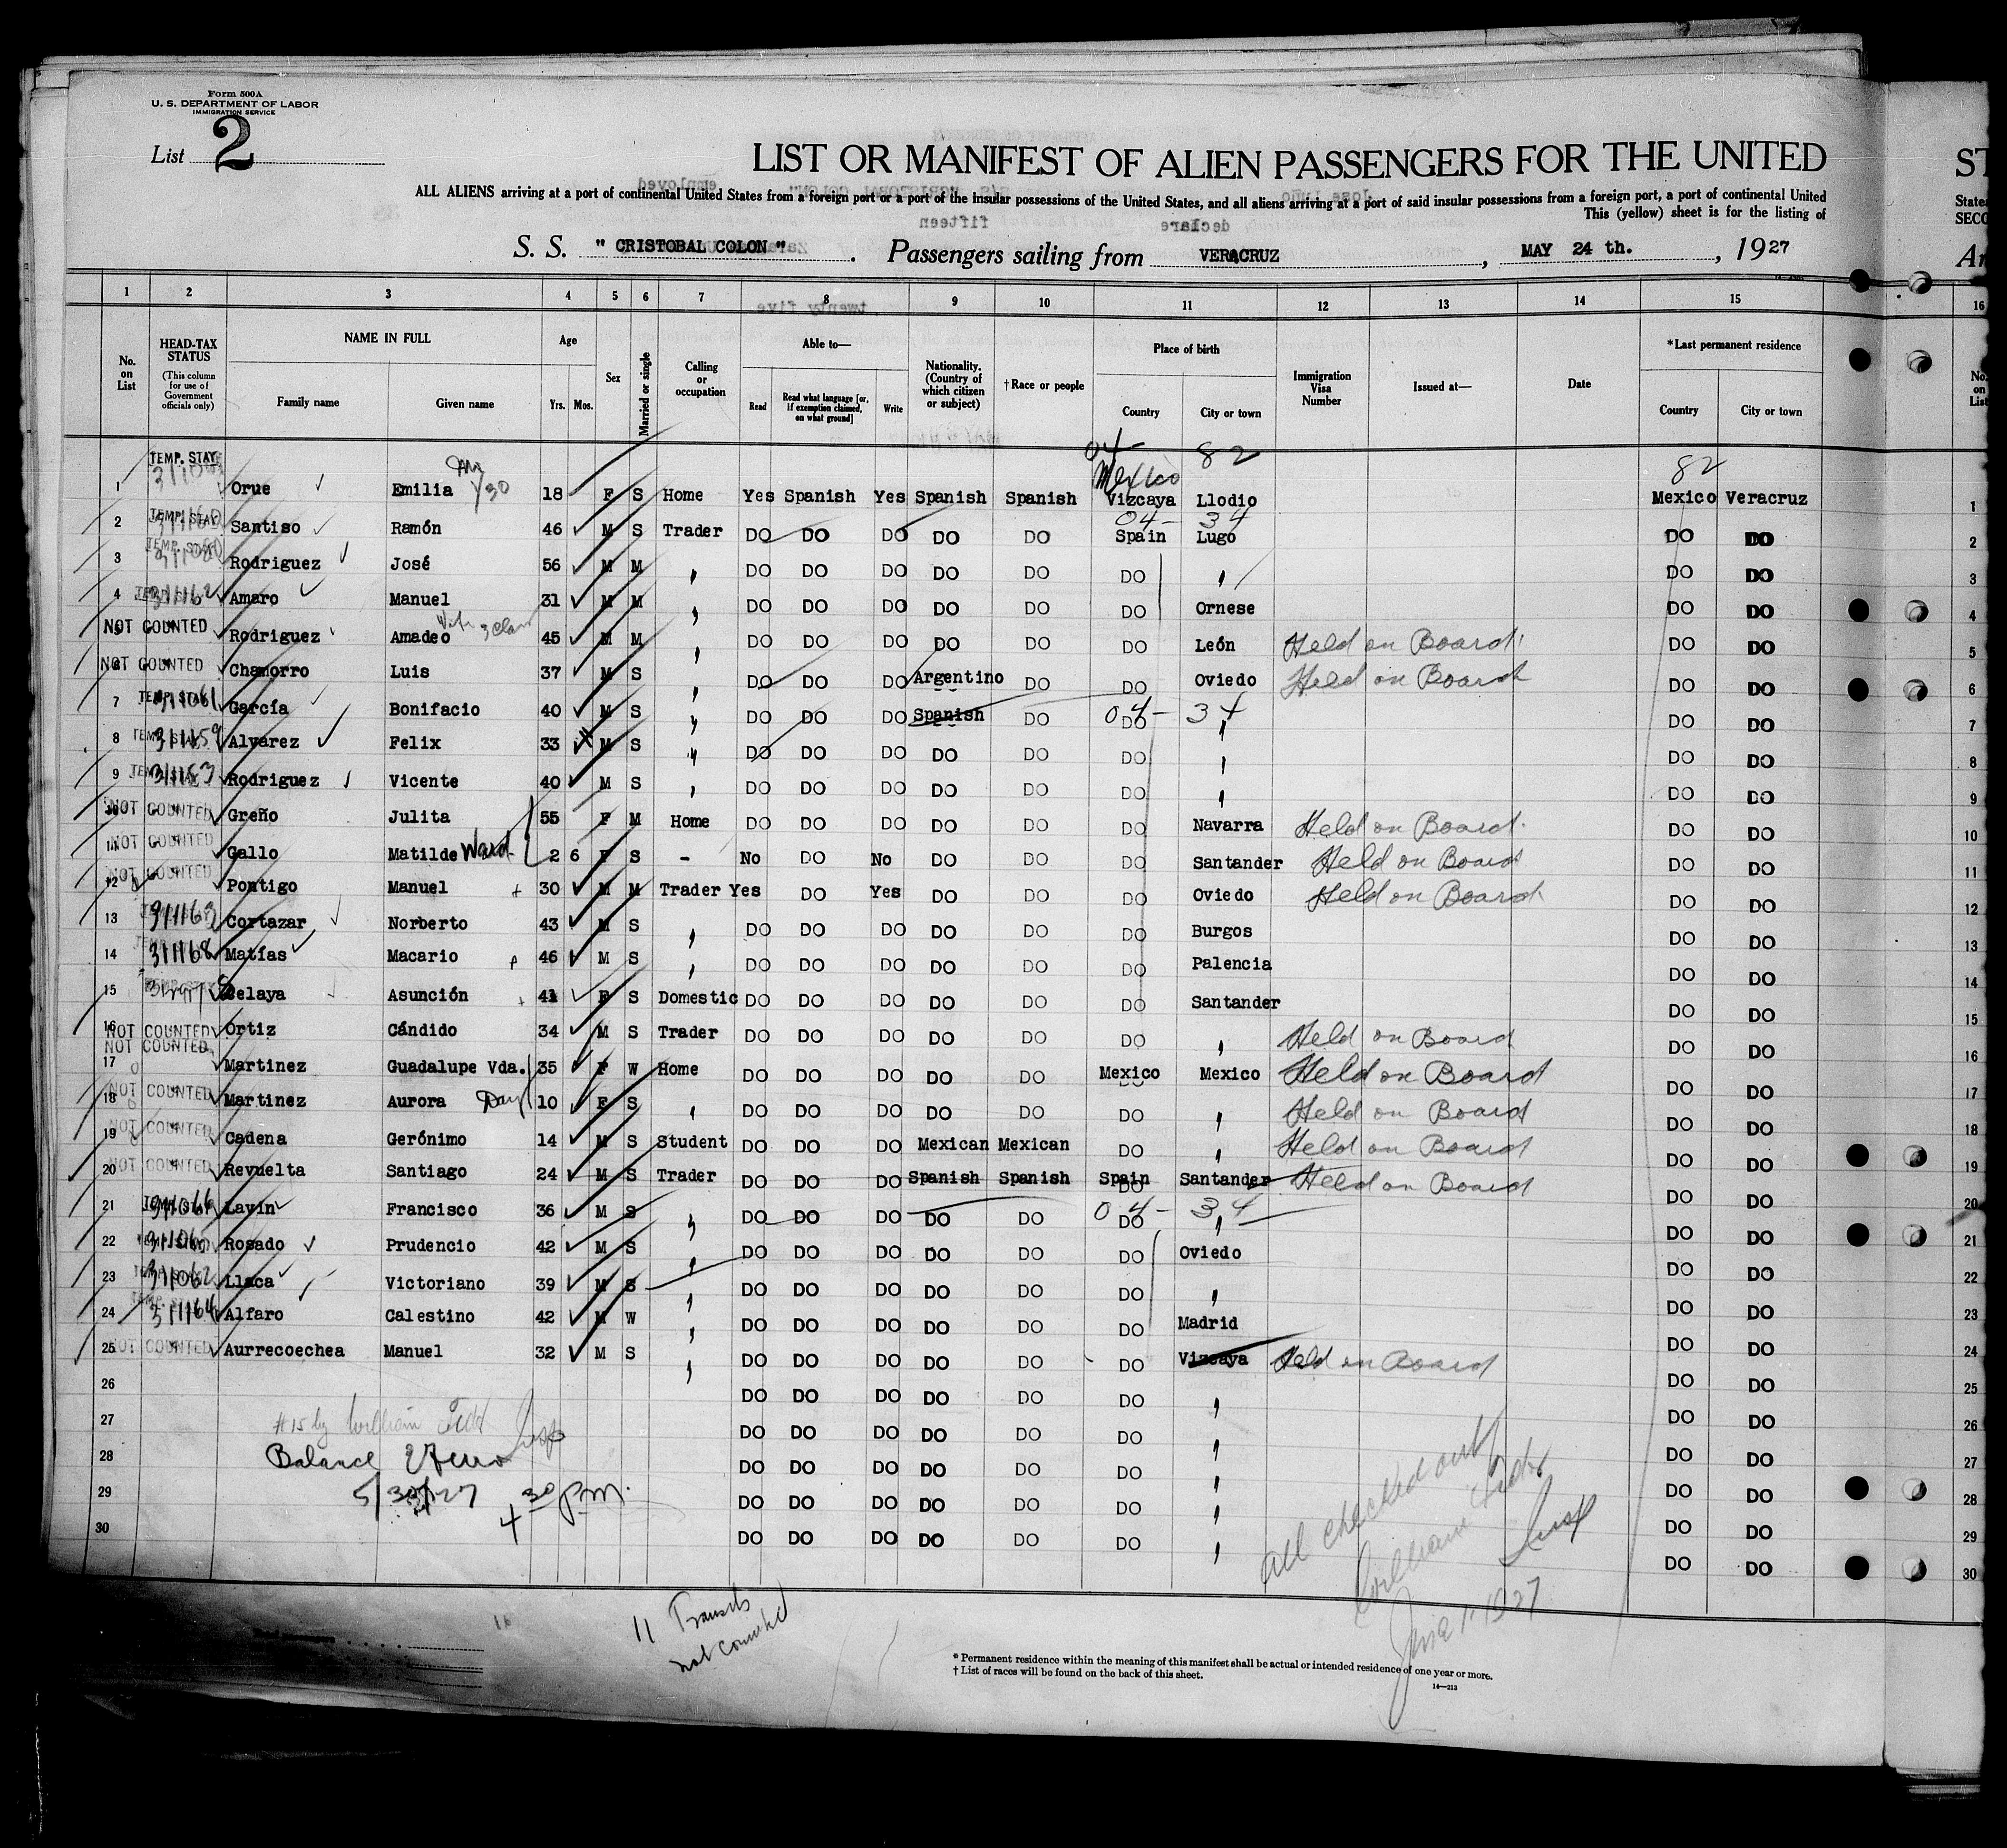 Form 500A
U. S. DEPARTMENT OF LABOR
IMMIGRATION SERVICE
List 2
LIST OR MANIFEST OF ALIEN PASSENGERS FOR THE UNITED
ST
ALL ALIENS arriving at a port of continental United States from a foreign port or a port of the insular possessions of the United States, and all aliens arriving at a port of said insular possessions from a foreign port, a port of continental United
This (yellow) sheet is for the listing of
S. S. " CRISTOBAL COLON " . Passengers sailing from VERACRUZ , MAY 24 th. , 1927
1 2 3 4 5 6 7 8 9 10 11 12 13 14 15 16
No. on List
HEAD-TAX STATUS
(This column for use of Government officials only)
NAME IN FULL
Family name
Given name
Age
Yrs. Mos.
Sex
Married or single
Calling or occupation
Able to—
Read
Read what language [or, if exemption claimed, on what ground]
Write
Nationality. (Country of which citizen or subject)
† Race or people
Place of birth
Country
City or town
Immigration Visa Number
Issued at—
Date
*Last permanent residence
Country
City or town
04- 82 82
Mexico
1 TEMP. STAY Orue Emilia 18 F S Home Yes Spanish Yes Spanish Spanish Vizcaya Llodio Mexico Veracruz 1
04- 34
2 TEMP. STAY Santiso Ramón 46 M S Trader DO DO DO DO DO Spain Lugo DO DO 2
3 TEMP. STAY Rodriguez José 56 M M , DO DO DO DO DO DO , DO DO 3
4 311162 Amaro Manuel 31 M M , DO DO DO DO DO DO Ornese DO DO 4
5 NOT COUNTED Rodriguez Amadeo 45 M M , DO DO DO DO DO DO León Held on Board DO DO 5
6 NOT COUNTED Chamorro Luis 37 M S , DO DO DO Argentino DO DO Oviedo Held on Board DO DO 6
7 TEMP. STAY 311061 García Bonifacio 40 M S , DO DO DO Spanish DO DO 04- 34 , DO DO 7
8 311159 Alvarez Felix 33 M S " DO DO DO DO DO DO , DO DO 8
9 Rodriguez Vicente 40 M S , DO DO DO DO DO DO , DO DO 9
10 NOT COUNTED Greño Julita 55 F M Home DO DO DO DO DO DO Navarra Held on Board DO DO 10
11 NOT COUNTED Gallo Matilde Ward 2 6 F S - No DO No DO DO DO Santander Held on Board DO DO 11
12 NOT COUNTED Pontigo Manuel 30 M M Trader Yes DO Yes DO DO DO Oviedo Held on Board DO DO 12
13 Cortazar Norberto 43 M S , DO DO DO DO DO DO Burgos DO DO 13
14 311168 Matías Macario 46 M S , DO DO DO DO DO DO Palencia DO DO 14
15 Celaya Asunción 41 F S Domestic DO DO DO DO DO DO Santander DO DO 15
16 NOT COUNTED Ortiz Cándido 34 M S Trader DO DO DO DO DO DO , Held on Board DO DO 16
17 NOT COUNTED Martinez Guadalupe Vda. 35 F W Home DO DO DO DO DO Mexico Mexico Held on Board DO DO 17
18 NOT COUNTED Martinez Aurora Dau 10 F S , DO DO DO DO DO DO , Held on Board DO DO 18
19 NOT COUNTED Cadena Gerónimo 14 M S Student DO DO DO Mexican Mexican DO , Held on Board DO DO 19
20 NOT COUNTED Revuelta Santiago 24 M S Trader DO DO DO Spanish Spanish Spain Santander Held on Board DO DO 20
21 Lavin Francisco 36 M S , DO DO DO DO DO DO 04- 34 , DO DO 21
22 Rosado Prudencio 42 M S , DO DO DO DO DO DO Oviedo DO DO 22
23 311062 Llaca Victoriano 39 M S , DO DO DO DO DO DO , DO DO 23
24 311164 Alfaro Calestino 42 M W , DO DO DO DO DO DO Madrid DO DO 24
25 NOT COUNTED Aurrecoechea Manuel 32 M S , DO DO DO DO DO DO Vizcaya Held on Board DO DO 25
26 DO DO DO DO DO DO , DO DO 26
27 DO DO DO DO DO DO , DO DO 27
28 DO DO DO DO DO DO , DO DO 28
29 DO DO DO DO DO DO , DO DO 29
30 DO DO DO DO DO DO , DO DO 30
#15 by William Insp
Balance
5/30/27 4 30 pm.
All checked out
William
Insp
June 1-1927
11 Transits
not counted
* Permanent residence within the meaning of this manifest shall be actual or intended residence of one year or more.
† List of races will be found on the back of this sheet.
14—213